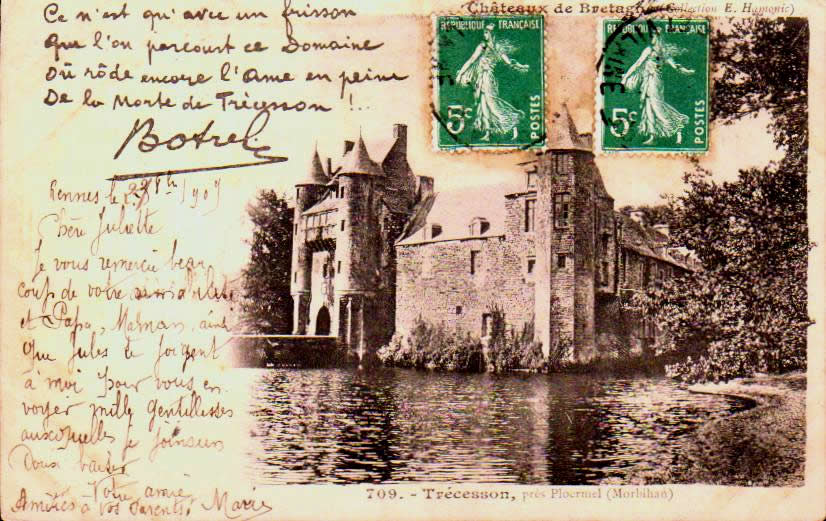 Châteaux de Bretagne (Collection E. Hamonic)
Ce n'est qu'avec un frisson
Que l'on parcourt ce Domaine
Où rôde encore l'Ame en peine
De la Morte de Trécesson !..
Botrel
RÉPUBLIQUE FRANÇAISE
5c
POSTES
RÉPUBLIQUE FRANÇAISE
5c
POSTES
Rennes le 1907
Chère Juliette
Je vous remercie beau
coup de votre amabilité
et Papa, Maman, ainsi
que Jules se joignent
à moi pour vous en
voyer mille gentillesses
auxquelles je joins un
doux baiser
Votre amie
Amitiés à vos parents. Marie
709. - Trécesson, près Ploermel (Morbihan)